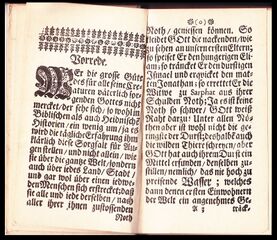 Vorrede.
WEr die grosse Güte
des für alle seine Cre-
aturen väterlich sor-
genden Gottes nicht
mercket, der sehe sich, so wohl in
Biblischen als auch Heydnischen
Historien, ein wenig um, ja es
wird die tägliche Erfahrung ihm
klärlich diese Sorgfalt für Au-
gen stellen, und nicht allein, wie
sie über die gantze Welt, sondern
auch über jedes Land, Stadt,
und gar wol über einen jedwe-
den Menschen sich erstrecke, daß
sie alle und jede derselben, nach
aller ihrer ihnen zustossenden
Noth
(o)
Noth, geniessen können. So
kleidet GOtt die nackenden, wie
zu sehen an unsern ersten Eltern;
so speiset Er den hungerigen Eli-
am; so träncket Er den durstigen
Ismael und erquicket den mat-
ten Jonathan; so rettet Er die
Witwe zu Sarphat aus ihrer
Schulden Noth; Ja es ist keine
Noth so schwer, Gott schaffet
Raht darzu: Unter allen Nö-
then aber ist wohl nicht die ge-
ringste der Durst, deshalb auch
die wilden Thiere schreyen, aber
GOtt hat auch ihrem Durst ein
Mittel erfunden, denselben zu-
stillen, nemlich, das nie hoch zu
preisende Wasser, welches
dann denen ersten Einwohnern
der Welt ein angenehmes Ge-
A 2 träck,